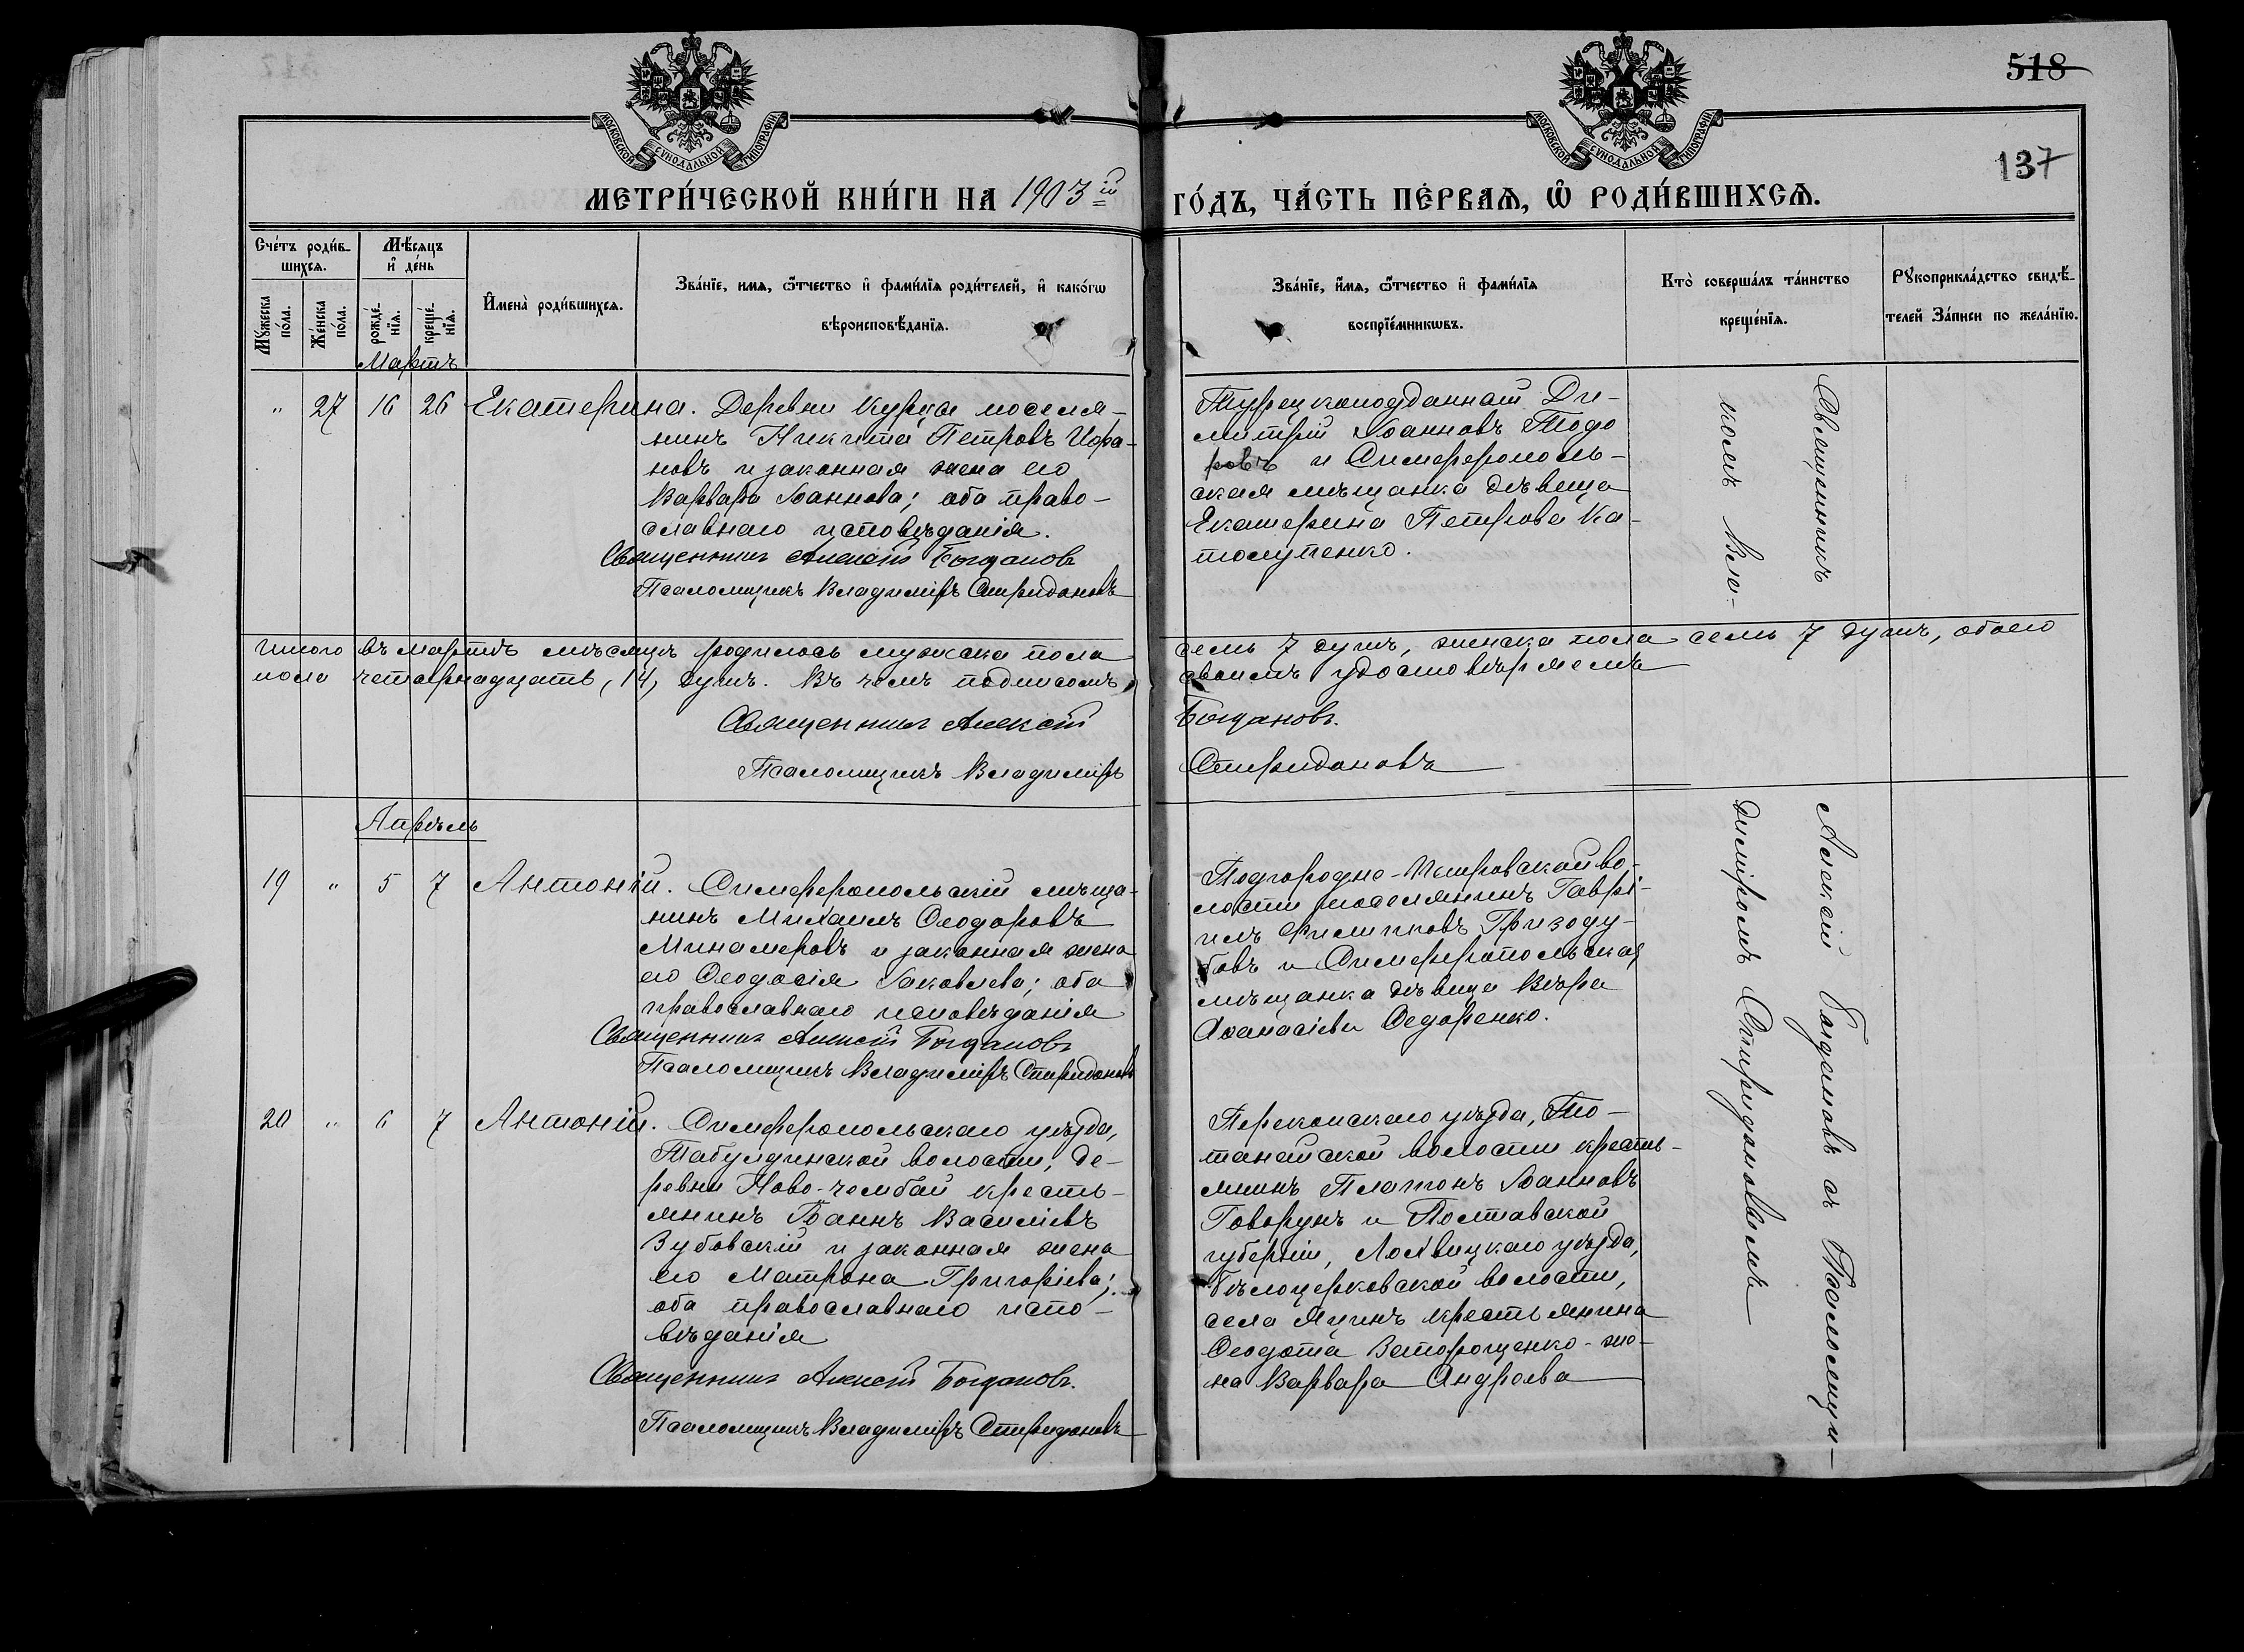 518
137
МОСКОВСКОЙ СѴНОДАЛЬНОЙ ТИПОГРАФІИ
МОСКОВСКОЙ СѴНОДАЛЬНОЙ ТИПОГРАФІИ
МЕТРИ́ЧЕСКОЙ КНИ́ГИ НА 1903 й ГО́ДЪ, ЧА́СТЬ ПЕ́РВАѦ, Ѡ҆ РОДИ́ВШИХСѦ.
Сче́тъ роди́в-
шихсѧ.
Мѣ́сѧцъ
и҆ де́нь
Мꙋ́жеска
по́ла.
Же́нска
по́ла.
рожде́-
нїѧ.
креще́-
нїѧ.
И҆мена̀ роди́вшихсѧ.
Зва́нїе, имѧ, ѻ҆́тчество и҆ фами́лїѧ роди́телей, и҆ како́гѡ
вѣроисповѣ́данїѧ.
Зва́нїе, и҆́мѧ, ѻ҆́тчество и҆ фами́лїѧ
воспрїе́мникѡвъ.
Кто̀ соверша́лъ та́инство
креще́нїѧ.
Рꙋкоприкла́дство свидѣ́-
телей За́писи по жела́нїю.
Мартъ
" 27 16 26 Екатерина. Деревни Курцы поселя-
нинъ Никита Петровъ
новъ и законная жена его
Варвара Іоаннова; оба право-
славнаго исповѣданія.
Священникъ Алексій Богдановъ
Псаломщикъ Владиміръ Спиридоновъ
Турецкоподданный Ди-
митрій Іоанновъ Тодо
ровъ и Симферополь-
ская мѣщанка дѣвица
Екатерина Петрова Ка-
толупенко.
Итого въ мартѣ мѣсяцѣ родилось мужска пола семь 7 душъ, женска пола семь 7 душъ, обоего
пола четырнадцать, 14, душъ. Въ чемъ подписомъ своимъ удостовѣряемъ
Священникъ Алексій Богдановъ.
Псаломщикъ Владиміръ Спиридоновъ
Апрѣль
19 " 5 7 Антоній. Симферопольскій мѣща-
нинъ Михаилъ Ѳеодоровъ
Минамеровъ и законная жена
его Ѳеодосія Іаковлева; оба
православнаго исповѣданія
Священникъ Алексій Богдановъ
Псаломщикъ Владиміръ Спиридоновъ
Подгородно-Петровской во-
лости поселянинъ Гаврі-
илъ Филипповъ Гризоду-
бовъ и Симферопольская
мѣщанка дѣвица Вѣра
Аѳанасіева Ѳедоренко.
20 " 6 7 Антоній. Симферопольскаго уѣзда,
Табулдинской волости, де-
ревни Ново-чембай кресть-
янинъ Іоаннъ Василіевъ
Зубовскій и законная жена
его Матрона Григоріева;
оба православнаго испо-
вѣданія
Священникъ Алексій Богдановъ.
Псаломщикъ Владиміръ Спиридоновъ
Перекопскаго уѣзда, То-
танайской волости кресть-
янинъ Платонъ Іоанновъ
Говорунъ и Полтавской
губерніи, Лохвицкаго уѣзда,
Бѣлоцерковской волости,
села Яцинъ крестьянина
Ѳеодота же-
на Варвара Андреева
Священникъ Алексій Богдановъ съ Псаломщи-
комъ Вла-
диміромъ Спиридоновымъ